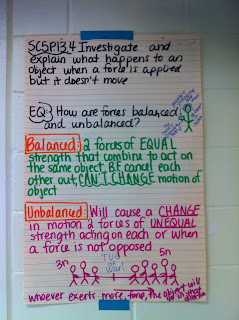 SC5P13.4 Investigate and
explain what happens to an
object when a force is applied
but it doesn't move
EQ: How are forces balanced
and unbalanced?
Balanced: 2 forces of EQUAL
strength that combine to act on
the same object BF cancel each
other out, CAN'T CHANGE motion of
object
Unbalanced: Will cause a CHANGE
in motion 2 forces of UNEQUAL
strength acting on each or when
a force is not opposed
3n
Tug
of
War!
5n
whoever exerts more force, the object will
go in that
direction